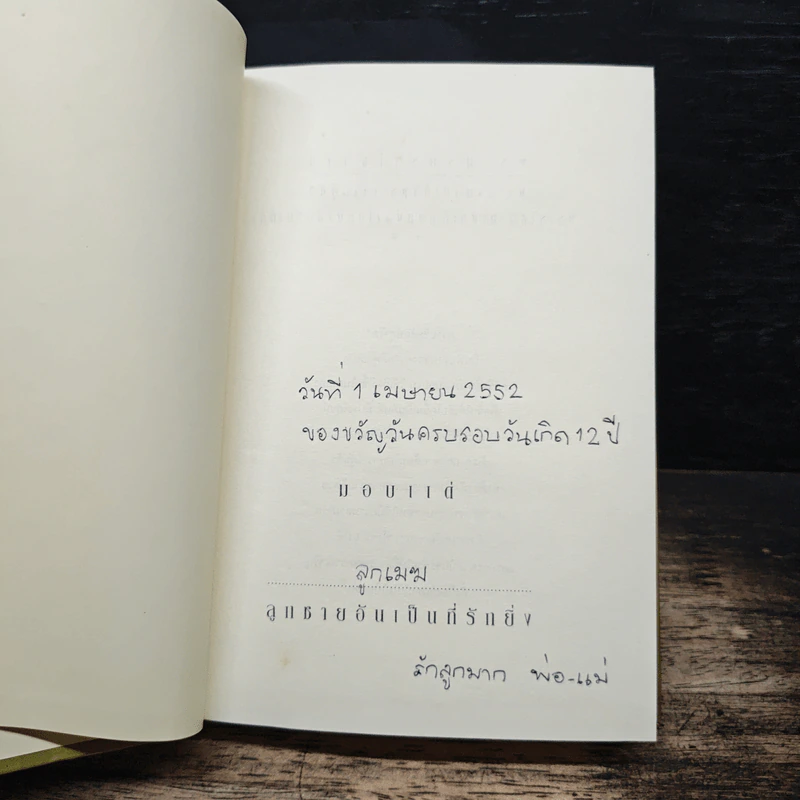 วันที่ 1 เมษายน 2552
ของขวัญวันครบรอบวันเกิด 12 ปี
มอบแด่
ลูกเมฆ
ลูกชายอันเป็นที่รักยิ่ง
รักลูกมาก พ่อ-แม่